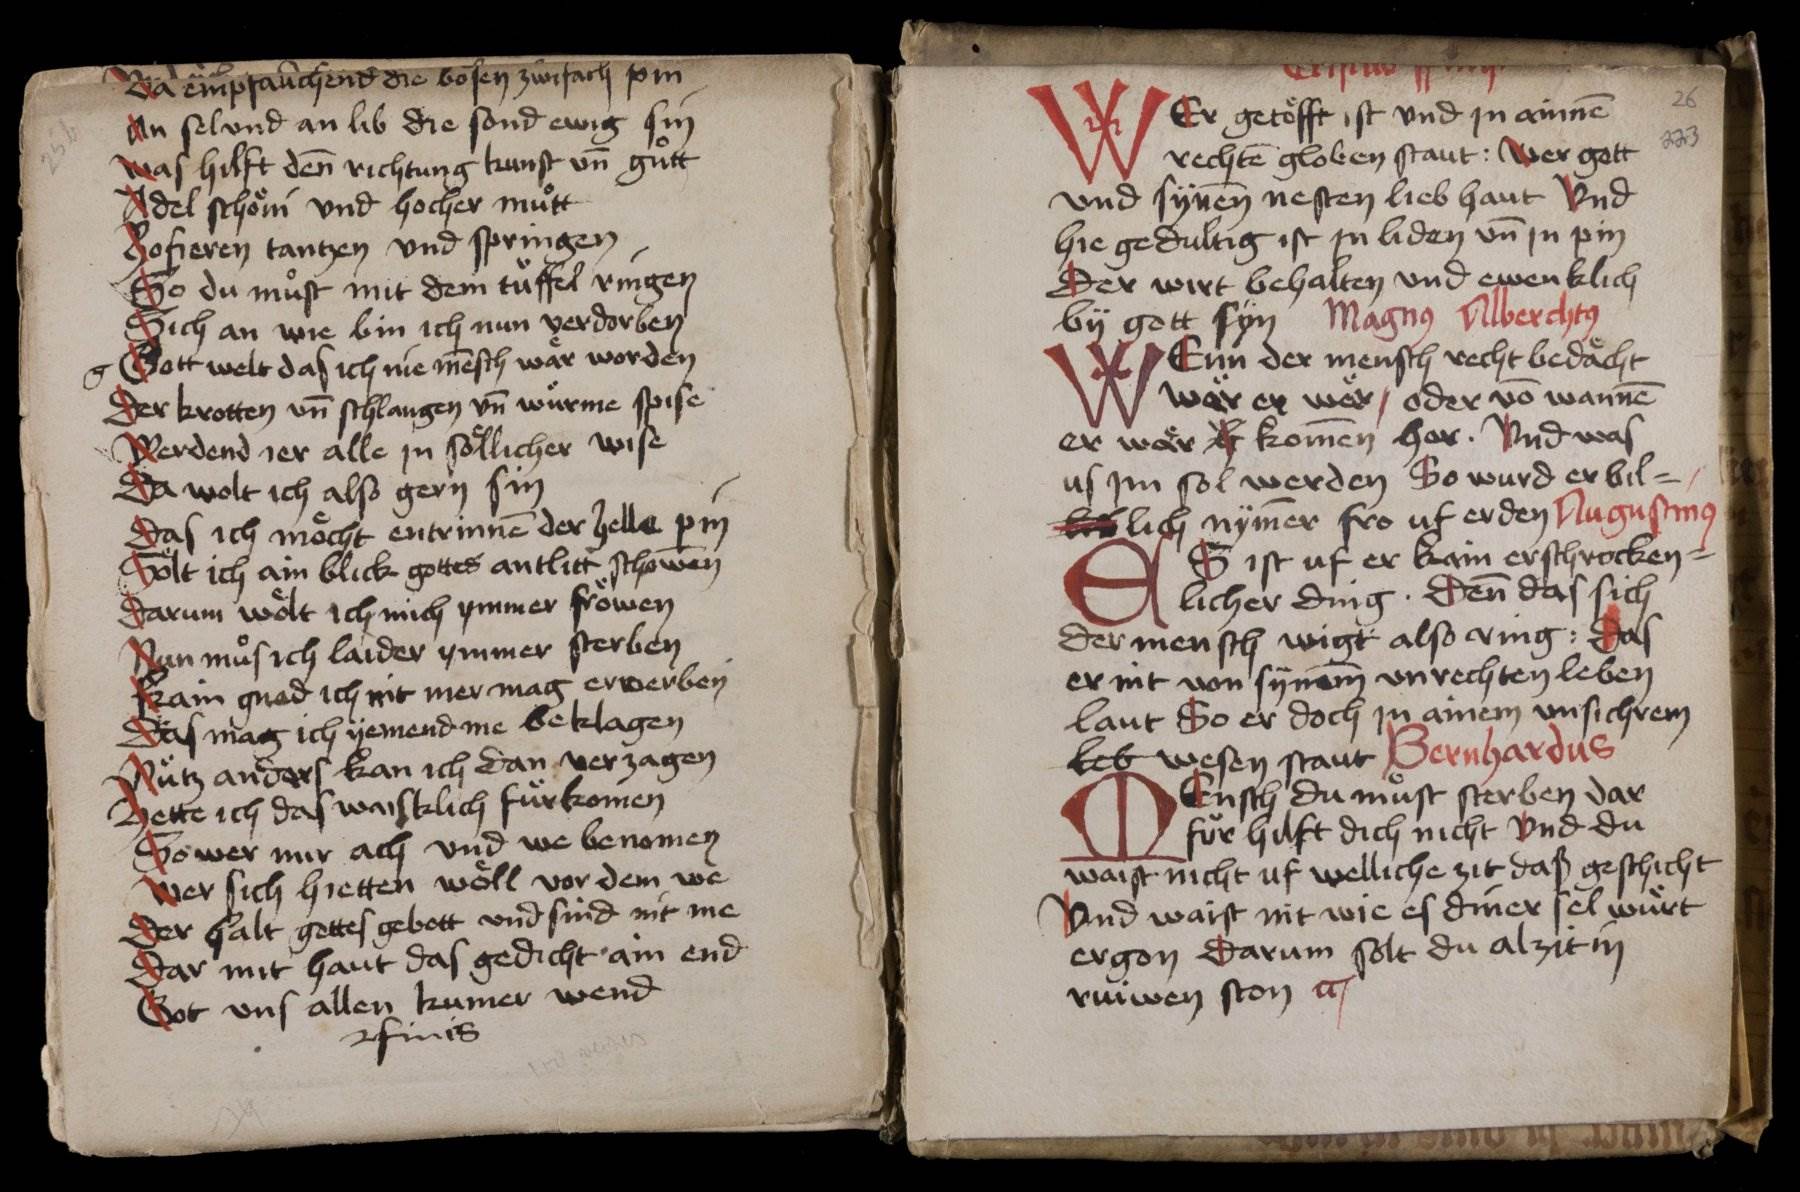 Da empfauchend die bösen zwifach pin
An sel vnd an lib die sond ewig sin
was hilft den̄ richtung kunst vn̄ gůtt
Adel schöni vnd hocher můtt
Hofieren tantzen vnd springen
So du můst mit dem tüffel ringen
Sich an wie bin ich nun verdorben
g Gott welt das ich nie mēsch wär worden
Der krotten vn̄ schlangen vn̄ würme spise
Werdend ier alle jn söllicher wise
Da wolt ich also gern sin
Das ich möcht entrinnē der helle pin
Sölt ich ain blick gottes antlitt schowen̄
Darum wölt ich mich ymmer fröwen
Nun můs ich laider ymmer sterben
Kain gnad ich nit mer mag erwerben
Das mag ich yemend me beklagen
Nütz anders kan ich dan verzagen
Hette ich das waislklich fürkomen
So wer mir ach vnd we benomen
Wer sich hietten wöll vor dem we
Der halt gottes gebott vnd sind nit me
Dar mit haut das gedicht ain end
Got vns allen kumer wend
finis
25b
26
223
WEr getöfft ist vnd jn ainnē
rechtē globen staut : Wer gott
vnd synen̄ nesten lieb haut Vnd
hie gedultig ist jn liden vn̄ jn pin
Der wirt behalten vnd ewenklich
by gott syn Magnus Alberchtus
WEnn der mensch recht bedächt
wär er wër / oder vō wannē
er wär komen̄ her . Vnd was
us jm sol werden So wurd er bil=
lich nym̄er fro uf erden Augustinus
ES ist uf er kain erschrocken=
licher ding . Den̄ das sich
der mensch wigt also ring : Das
er nit von synem vnrechten leben
laut So er doch jn ainem vnsichrem
leb wesen staut Bernhardus
MEnsch du můst sterben dar
für hilft dich nicht Vnd du
waist nicht uf welliche zit daß geschicht
Vnd waist nit wie es diner sel würt
ergon Darum solt du alzit in
ruiwen ston